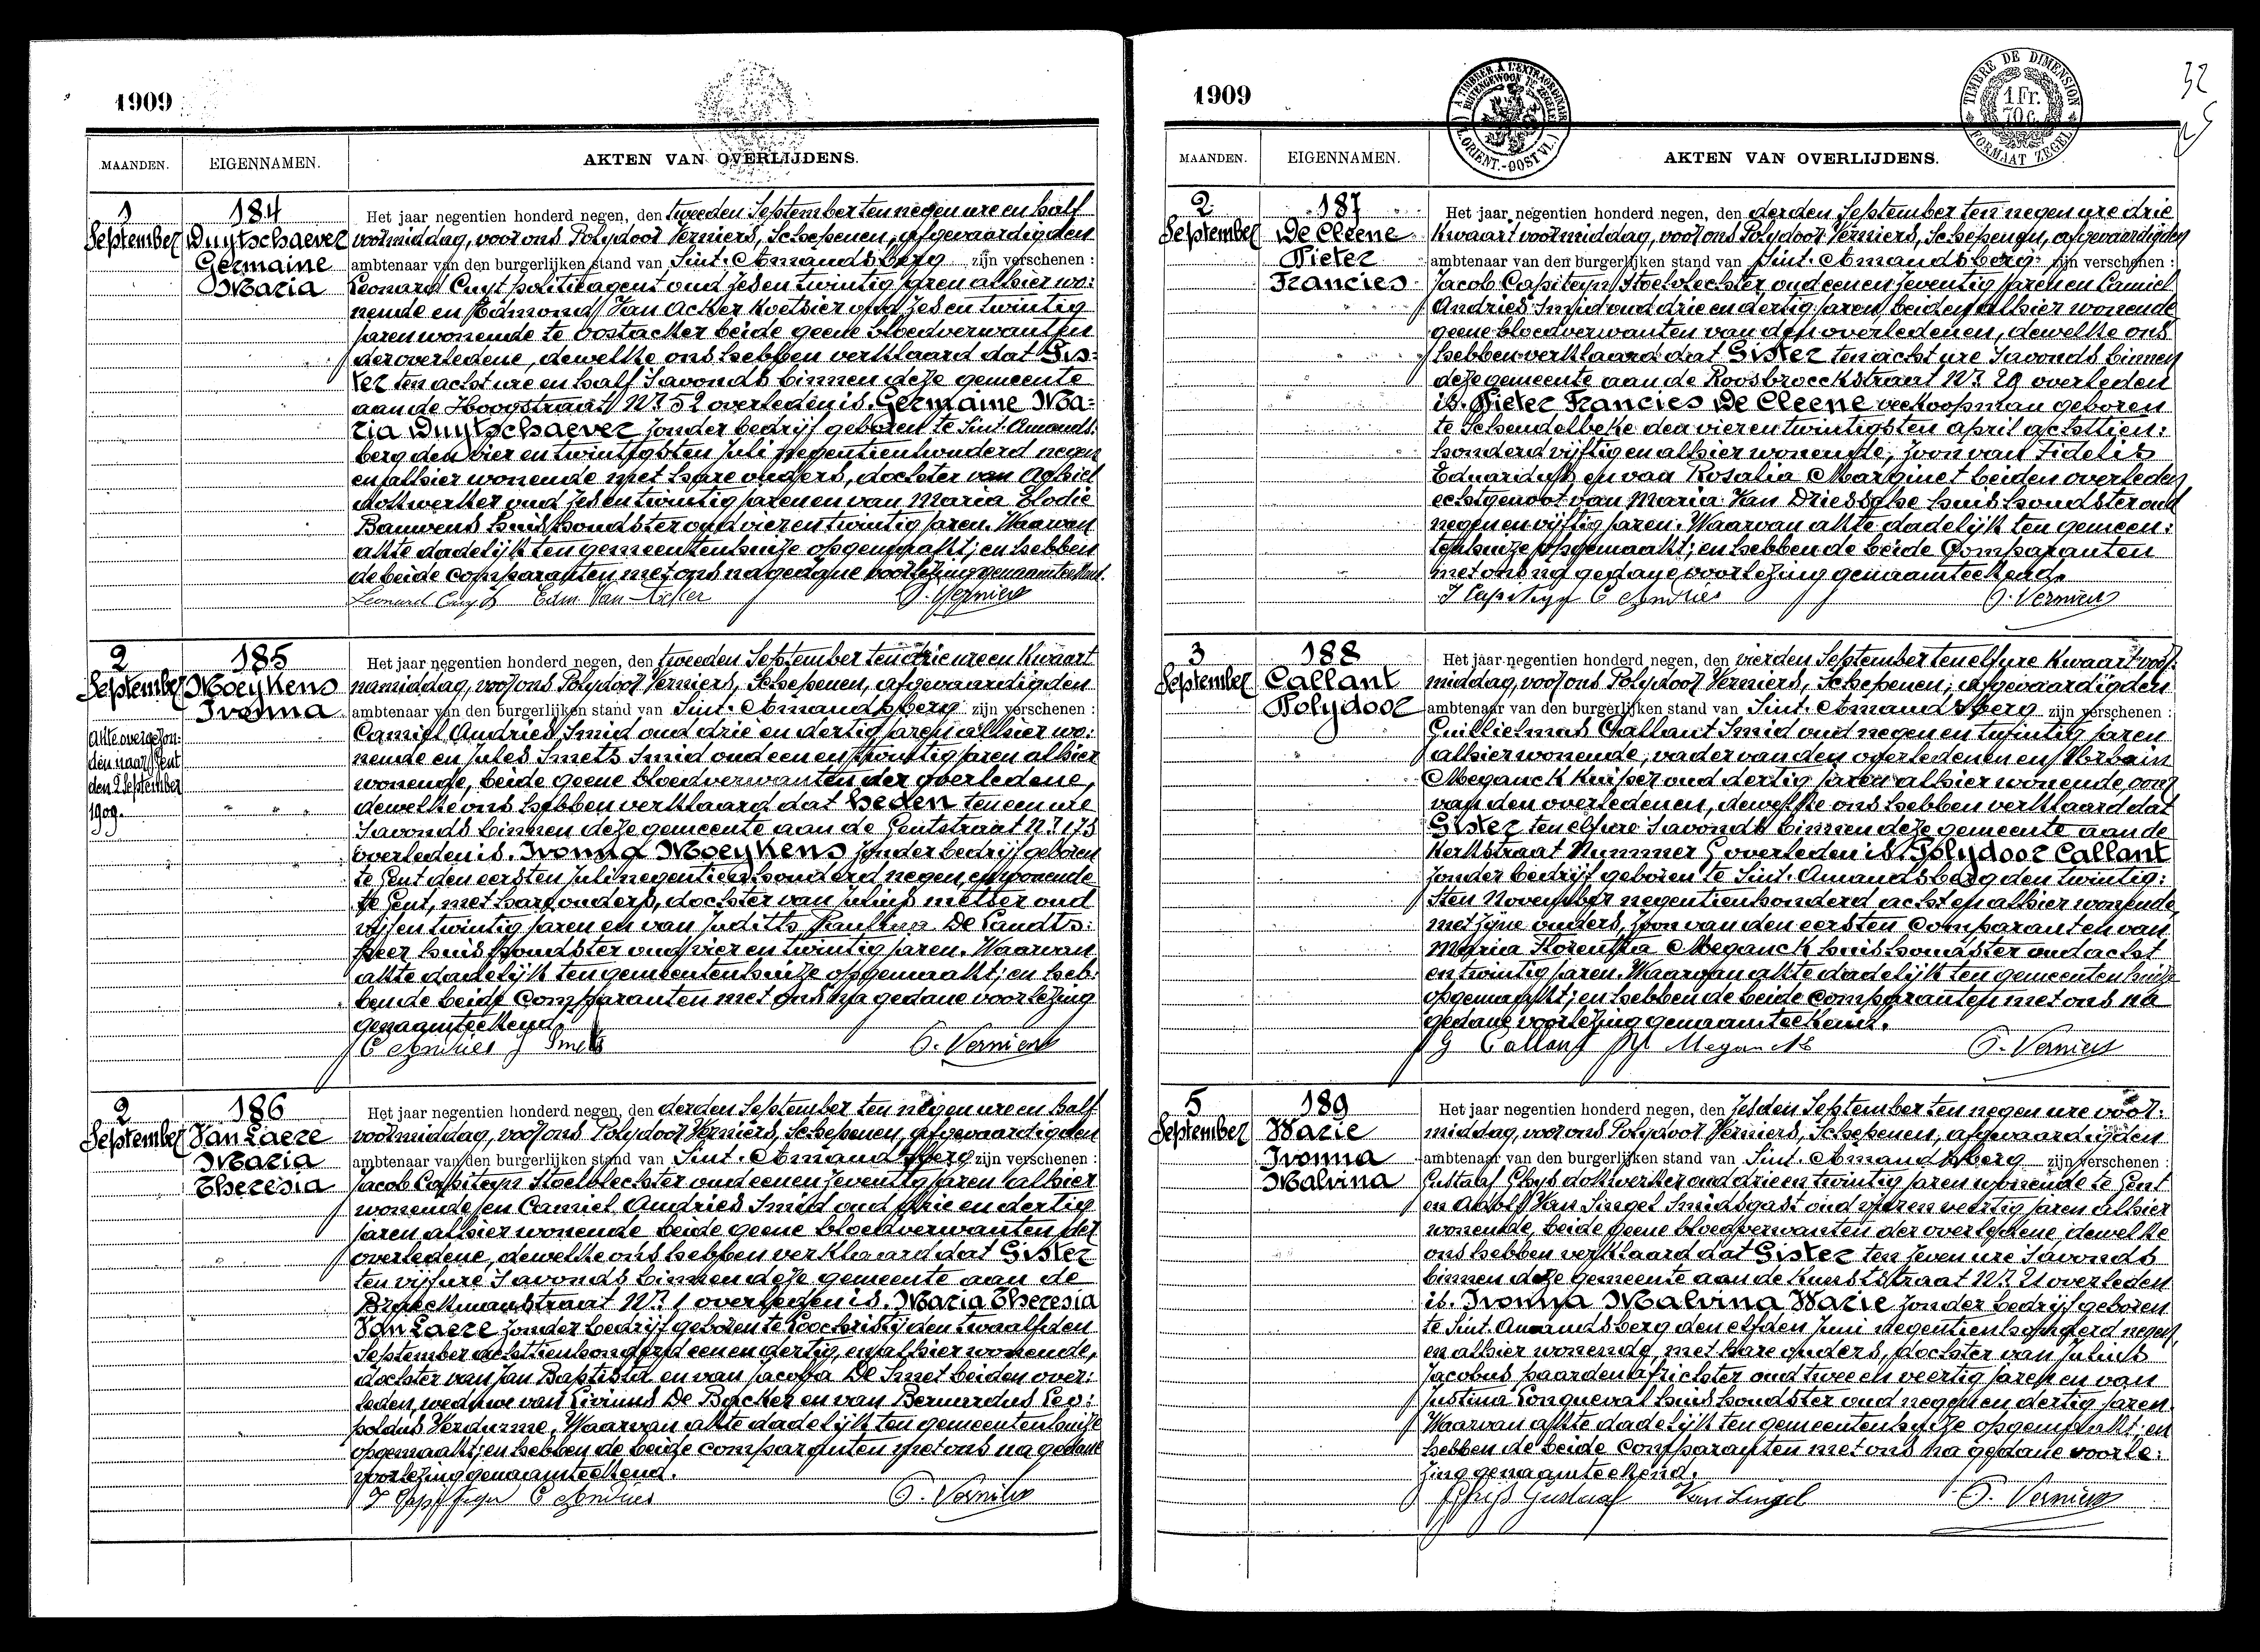 1909
MAANDEN. EIGENNAMEN. AKTEN VAN OVERLIJDENS.
1 September
184
Duytschaever
Germaine
Maria
Het jaar negentien honderd negen, den tweeden September ten negen ure en half
voormiddag, voor ons Polydoor Verniers, Schepenen, afgevaardigden
ambtenaar van den burgerlijken stand van Sint-Amandsberg zijn verschenen :
Leonard Cuyt politieagent oud zes en twintig jaren alhier wo:
nende en Edmond Van Acker Koetsier oud zes en twintig
jaren wonende te Oostacker beide geene bloedverwanten
der overledene, dewelke ons hebben verklaard dat Gis:
ter ten acht ure en half 's avonds binnen deze gemeente
aan de Hoogstraat Nr 52 overleden is. Germaine Ma:
ria Duytschaever zonder bedrijf geboren te Sint. Amands:
berg den vier en twintigsten Juli negentienhonderd negen
en alhier wonende met hare ouders, dochter van Achiel
dokwerker oud zes en twintig jaren en van Maria Elodie
Bauwens huishoudster oud vier en twintig jaren. Waarvan
akte dadelijk ten gemeentenhuize opgemaakt; en hebben
de beide comparanten met ons na gedane voorlezing genaamteekend.
Leonard Cuyt Edm Van Acker P. Verniers
2 September
185
Moeykens
Ivonna
Akte overgezon:
den naar Gent
den 2 September
1909.
Het jaar negentien honderd negen, den tweeden September ten drie ure en Kwaart
namiddag, voor ons Polydoor Verniers, Schepenen, afgevaardigden
ambtenaar van den burgerlijken stand van Sint-Amandsberg zijn verschenen :
Camiel Andries Smid oud drie en dertig jaren alhier wo:
nende en Jules Smets Smid oud een en twintig jaren alhier
wonende, beide geene bloedverwanten der overledene,
dewelke ons hebben verklaard dat heden ten een ure
's avonds binnen deze gemeente aan de Gentstraat Nr 173
overleden is. Ivonna Moeykens zonder bedrijf geboren
te Gent den eersten Juli negentienhonderd negen, en wonende
te Gent, met hare ouders, dochter van Julius metser oud
vijf en twintig jaren en van Judith Paulina De Landts:
heer huishoudster oud vier en twintig jaren. Waarvan
akte dadelijk ten gemeentenhuize opgemaakt; en heb:
ben de beide Comparanten met ons na gedane voorlezing
genaamteekend
C Andries J Smets P. Verniers
2 September
186
Van Laere
Maria
Theresia
Het jaar negentien honderd negen, den derden September ten negen ure en half
voormiddag, voor ons Polydoor Verniers, Schepenen, afgevaardigden
ambtenaar van den burgerlijken stand van Sint-Amandsberg zijn verschenen :
Jacob Capiteyn Stoelvlechter oud eenen zeventig jaren alhier
wonende en Camiel Andries Smid oud drie en dertig
jaren alhier wonende beide geene bloedverwanten der
overledene, dewelke ons hebben verklaard dat Gister
ten vijf ure 's avonds binnen deze gemeente aan de
Braeckmanstraat Nr 1 overleden is. Maria Theresia
Van Laere zonder bedrijf geboren te Loochristij den twaalfden
September achttienhonderd eenen dertig, en alhier wonende,
dochter van Jan Baptista en van Jacoba De Smet beiden over:
leden, weduwe van Livinus De Backer en van Bernardus Leo:
poldus Verdurme, Waarvan akte dadelijk ten gemeentenhuize
opgemaakt; en hebben de beide comparanten met ons na gedane
voorlezing genaamteekend.
J Capiteyn C Andries P. Verniers
1909
À TIMBRER À L'EXTRAORDINAIRE
BUITENGEWOON TE ZEGELEN
TIMBRE DE DIMENSION
1 Fr.
70 c.
FORMAAT ZEGEL
32
MAANDEN. EIGENNAMEN. AKTEN VAN OVERLIJDENS.
2 September
187
De Cleene
Pieter
Francies
Het jaar negentien honderd negen, den derden September ten negen ure drie
Kwaart voormiddag, voor ons Polydoor Verniers, Schepenen, afgevaardigden
ambtenaar van den burgerlijken stand van Sint-Amandsberg zijn verschenen :
Jacob Capiteyn Stoelvlechter oud eenen zeventig jaren en Camiel
Andries Smid oud drie en dertig jaren, beiden alhier wonende
geene bloedverwanten van den overledenen, dewelke ons
hebben verklaard dat Gister ten acht ure 's avonds binnen
deze gemeente aan de Roosbroeckstraat Nr 29 overleden
is. Pieter Francies De Cleene veekoopman geboren
te Schendelbeke den vier en twintigsten april achttien:
honderd vijftig en alhier wonende, zoon van Fidelis
Eduardus en van Rosalia Marginet beiden overleden
echtgenoot van Maria Van Driessche huishoudster oud
negen en vijftig jaren. Waarvan akte dadelijk ten gemeen:
tenhuize opgemaakt; en hebben de beide Comparanten
met ons na gedane voorlezing genaamteekend.
J Capiteyn C Andries P. Verniers
3 September
188
Callant
Polydoor
Het jaar negentien honderd negen, den vierden September ten elf ure Kwaart voor:
middag, voor ons Polydoor Verniers, Schepenen, afgevaardigden
ambtenaar van den burgerlijken stand van Sint-Amandsberg zijn verschenen :
Guillielmus Callant Smid oud negen en twintig jaren
alhier wonende, vader van den overledenen en Urbain
Meganck Kuiper oud dertig jaren alhier wonende, oom
van den overledenen, dewelke ons hebben verklaard dat
Gister ten elf ure 's avonds binnen deze gemeente aan de
Kerkstraat Nummer overleden is Polydoor Callant
zonder bedrijf geboren te Sint. Amandsberg den twintig:
sten November negentienhonderd acht en alhier wonende
met zijne ouders, zoon van den eersten Comparant en van
Maria Florentia Meganck huishoudster oud acht
en twintig jaren. Waarvan akte dadelijk ten gemeentenhuize
opgemaakt; en hebben de beide comparanten met ons na
gedane voorlezing genaamteekend.
G Callant Meganck P. Verniers
5 September
189
Warie
Ivonna
Malvina
Het jaar negentien honderd negen, den zesden September ten negen ure voor:
middag, voor ons Polydoor Verniers, Schepenen, afgevaardigden
ambtenaar van den burgerlijken stand van Sint-Amandsberg zijn verschenen :
Gustaaf Ghys dokwerker oud drie en twintig jaren wonende te Gent
en Adolf Van Singel Smidsgast oud vijf en veertig jaren alhier
wonende, beide geene bloedverwanten der overledene, dewelke
ons hebben verklaard dat Gister ten zeven ure 's avonds
binnen deze gemeente aan de Kunststraat Nr 21 overleden
is. Ivonna Malvina Warie zonder bedrijf geboren
te Sint. Amandsberg den elfden Juni negentienhonderd negen,
en alhier wonende, met hare ouders, dochter van Julius
Jacobus paardenafrichter oud twee en veertig jaren en van
Justina Conqueval huishoudster oud negen en dertig jaren.
Waarvan akte dadelijk ten gemeentenhuize opgemaakt; en
hebben de beide comparanten met ons na gedane voorle:
zing genaamteekend.
Ghijs Gustaaf Van Singel P. Verniers